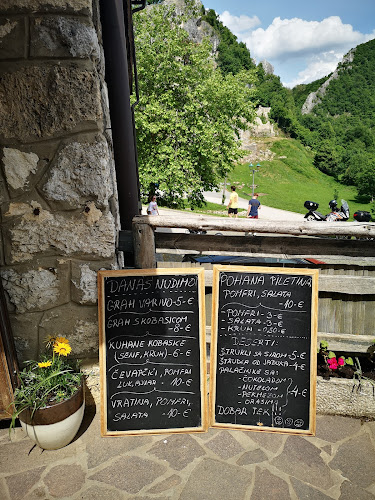 DANAS NUDIMO:
GRAH VARIVO-5-€
GRAH S KOBASICOM
-8-€
KUHANE KOBASICE
(SENF, KRUH) -6-€
ČEVAPČIĆI, POMFRI
LUK, AJVAR -10-€
VRATINA, POMFRI,
SALATA -10-€
POHANA PILETINA
POMFRI, SALATA
-10-€
-POMFRI-3-€
-SALATA-3-€
-KRUH-0.30-€
"DESERTI":
ŠTRUKLI SA SIROM-5-€
ŠTRUDLA OD JABUKA-4-€
PALAČINKE SA:
-ČOKOLADOM
-NUTELOM
-PEKMEZOM
-ORASIMA
4-€
DOBAR TEK!!!